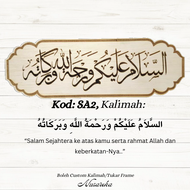 السلام عليكم ورحمة الله وبركاته
Kod: SA2, Kalimah:
السَّلَامُ عَلَيْكُمْ وَرَحْمَةُ اللَّهِ وَبَرَكَاتُهُ
"Salam Sejahtera ke atas kamu serta rahmat Allah dan
keberkatan-Nya.."
Boleh Custom Kalimah/Tukar Frame